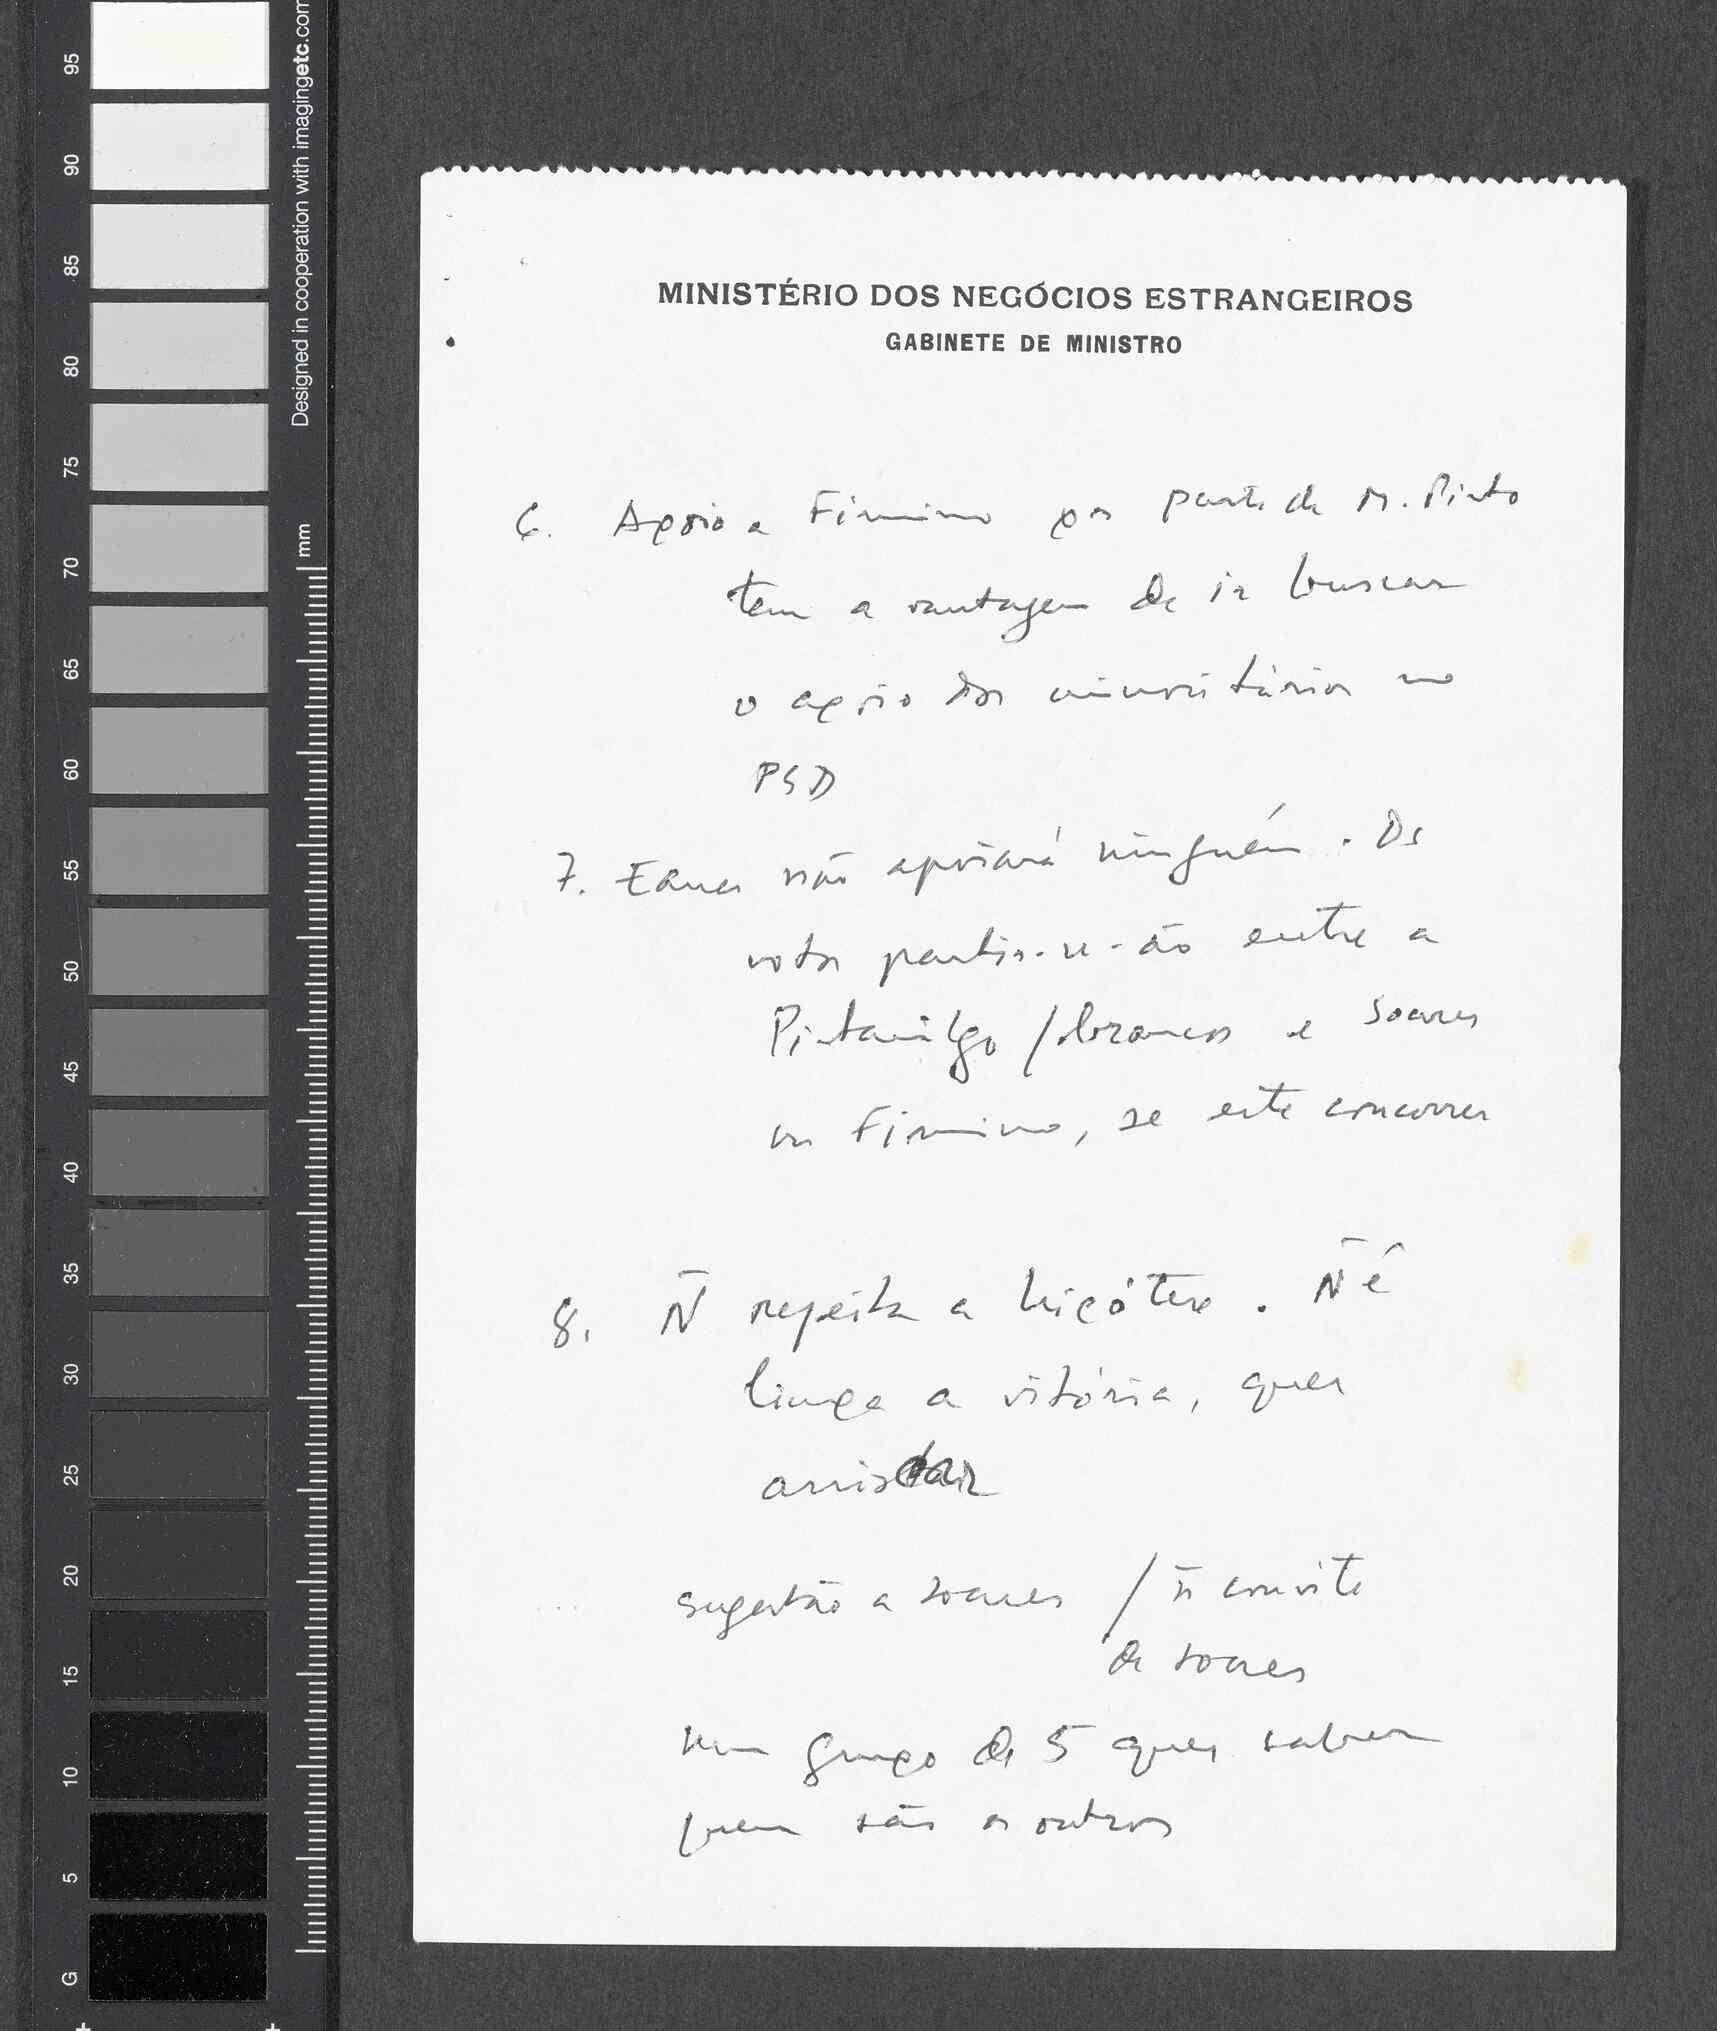 MINISTÉRIO DOS NEGÓCIOS ESTRANGEIROS
GABINETE DE MINISTRO
6. Apoio a Firmino por parte da M. Pinto
tem a vantagem de ir buscar
o apoio dos minoritários no
PSD
7. Eanes não apoiará ninguém. Os
votos partir-se-ão entre a
Pintasilgo / brancos e Soares
ou Firmino, se este concorrer
8. Ñ rejeita a hipótese. Ñ é
limpa a vitória, quer
sugestão a Soares / ñ convite
de Soares
num grupo de 5 quer saber
quem são os outros
Designed in cooperation with imagingetc.com
mm
95
90
85
80
75
70
65
60
55
50
45
40
35
30
25
20
15
10
5
G